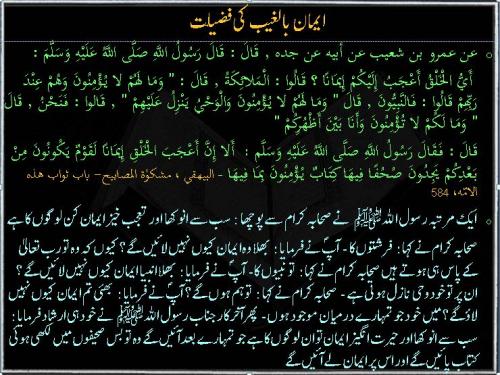 ایمان بالغیب کی فضیلت
عن عمرو بن شعيب عن أبيه عن جده , قَالَ : قَالَ رَسُولُ اللَّهِ صَلَّى اللَّهُ عَلَيْهِ وَسَلَّمَ :
أَيُّ الْخَلْقِ أَعْجَبُ إِلَيْكُمْ إِيمَانًا ؟ قَالُوا : الْمَلَائِكَةُ , قَالَ : " وَمَا لَهُمْ لا يُؤْمِنُونَ وَهُمْ عِنْدَ
رَبِّهِمْ قَالُوا : فَالنَّبِيُّونَ , قَالَ " وَمَا لَهُمْ لا يُؤْمِنُونَ وَالْوَحْيُ يَنْزِلُ عَلَيْهِمْ " , قالوا : فَنَحْنُ , قَالَ
" وَمَا لَكُمْ لا تُؤْمِنُونَ وَأَنَا بَيْنَ أَظْهُرِكُمْ "
قَالَ : فَقَالَ رَسُولُ اللَّهِ صَلَّى اللَّهُ عَلَيْهِ وَسَلَّمَ : أَلا إِنَّ أَعْجَبَ الْخَلْقِ إِيمَانًا لَقَوْمٌ يَكُونُونَ مِنْ
بَعْدِكُمْ يَجِدُونَ صُحُفًا فِيهَا كِتَابٌ يُؤْمِنُونَ بِمَا فِيهَا - البيهقي ، مشكوٰة المصابيح - باب ثواب هذه
الامّه، 584
ایک مرتبہ رسول اللہ ﷺ نے صحابہ کرام سے پوچھا: سب سے انوکھا اور تعجب خیز ایمان کن لوگوں کا ہے
صحابہ کرام نے کہا: فرشتوں کا۔ آپ نے فرمایا: بھلا وہ ایمان کیوں نہیں لائیں گے؟ کیوں کہ وہ تو رب تعالیٰ
کے پاس ہی ہوتے ہیں صحابہ کرام نے کہا: تو نبیوں کا۔ آپ نے فرمایا: بھلا انبیا ایمان کیوں نہیں لائیں گے؟
ان پر تو خود وحی نازل ہوتی ہے۔ صحابہ کرام نے کہا: تو ہم ہوں گے؟ آپ نے فرمایا: بھئی تم ایمان کیوں نہیں
لاؤ گے؟ میں خود جو تمہارے درمیان موجود ہوں۔ پھر آخر کار جناب رسول اللہ ﷺ نے خود ہی ارشاد فرمایا:
سب سے انوکھا اور حیرت انگیز ایمان تو ان لوگوں کا ہے جو تمہارے بعد آئیں گے وہ تو بس صحیفوں میں لکھی ہوئی
کتاب پائیں گے اور اس پر ایمان لے آئیں گے